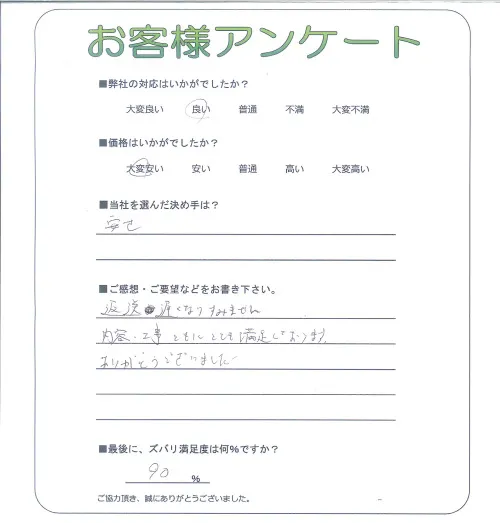 お客様アンケート
■弊社の対応はいかがでしたか？
大変良い 良い 普通 不満 大変不満
■価格はいかがでしたか？
大変安い 安い 普通 高い 大変高い
■当社を選んだ決め手は？
安さ
■ご感想・ご要望などをお書き下さい。
返送 遅くなりすみません
内容・工事 ともにとても満足しております。
ありがとうございました
■最後に、ズバリ満足度は何%ですか？
90 %
ご協力頂き、誠にありがとうございました。